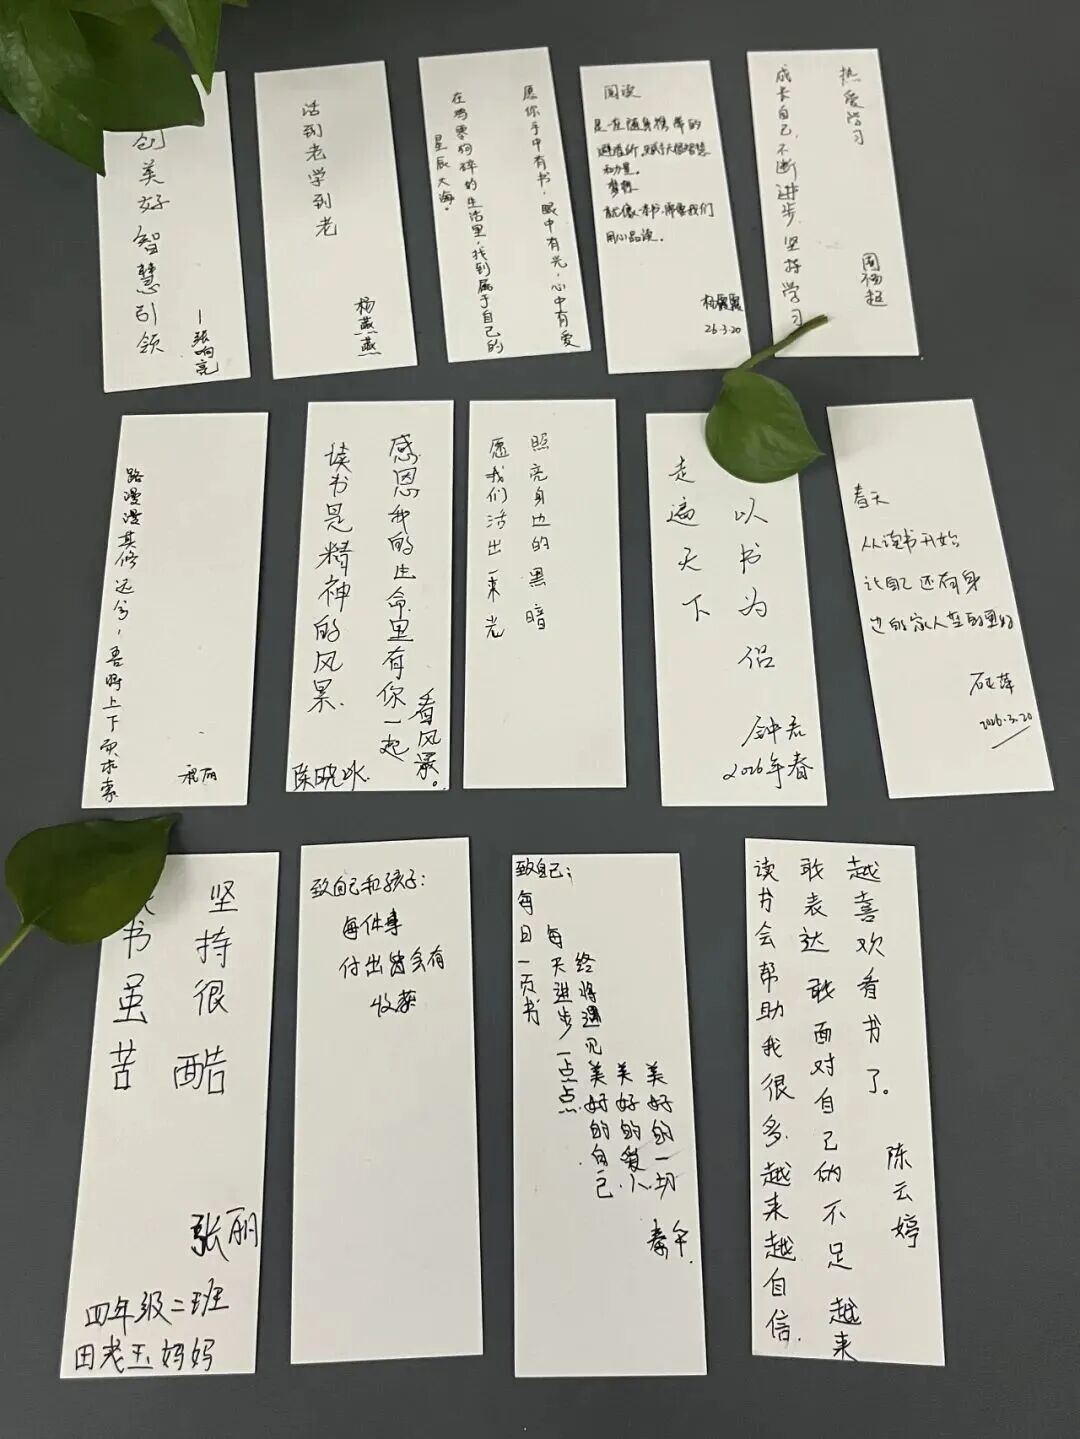 创美好智慧引领
—张响亮
活到老学到老
杨燕燕
愿你手中有书，眼中有光，心中有爱
在鸡零狗碎的生活里，找到属于自己的
星辰大海。
阅读
是一座随身携带的
避难所，赋予人们智慧
和力量。
梦想
就像一本书，需要我们
用心品读。
杨霞霞
26.3.20
热爱学习
成长自己，不断进步，坚持学习
周杨超
路漫漫其修远兮，吾将上下而求索
丽
感恩我的生命里有你一起
看风景。
读书是精神的风景.
陈晓冰.
照亮身边的黑暗
愿我们活出一束光
以书为侣
走遍天下
钟君
2026年春
春天
从读书开始
让自己还有身
边的家人变的更好
石萍
2026.3.20
坚持很酷
书虽苦
张丽
四年级二班
田老玉妈妈
致自己和孩子:
每件事
付出皆会有
收获
致自己;
每日一页书
每天进步一点点
终将遇见美好的自己
美好的爱人.
美好的一切
秦
越喜欢看书了。
敢表达 敢面对自己的不足 越来
读书会帮助我很多.越来越自信.
陈云婷